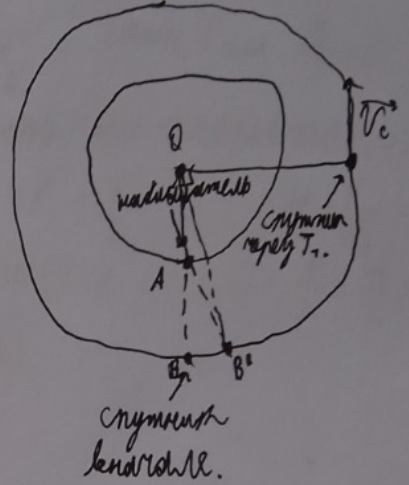 O
наблюдатель
V⃗c
спутник
через T₁.
A
B
B'
спутник
вначале.